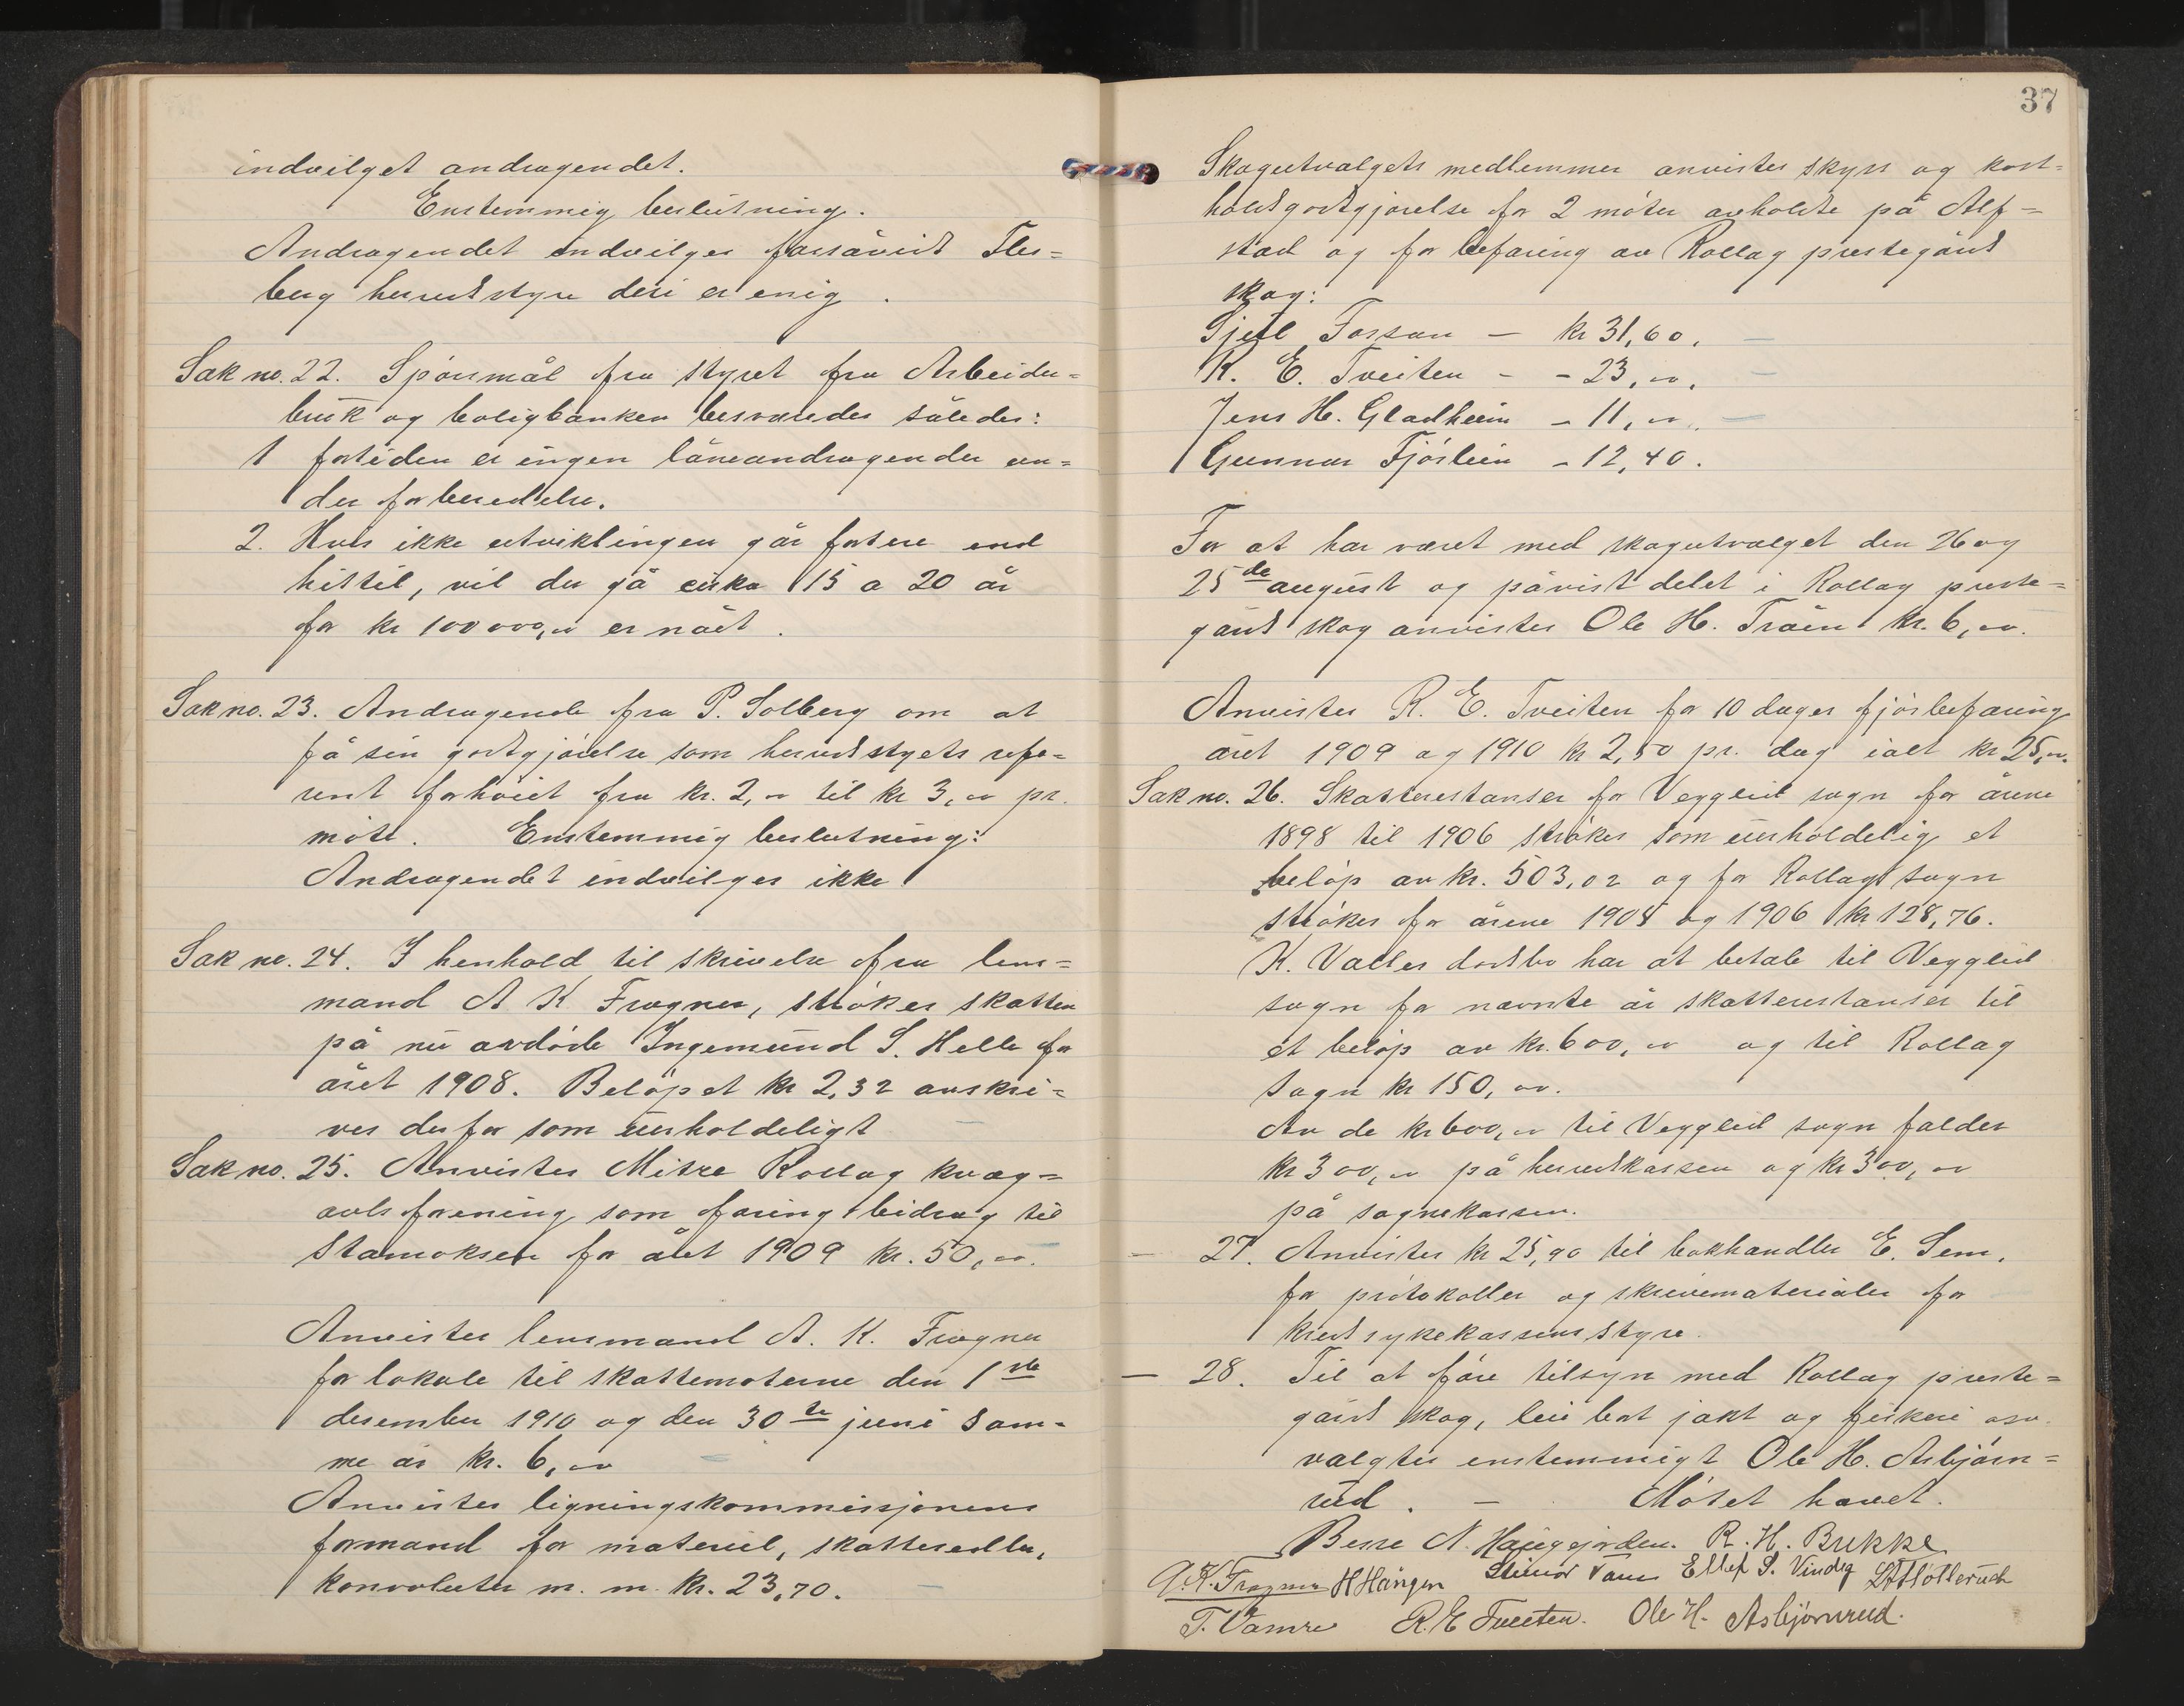 indvilget andragendet.
Enstemmig beslutning.
Andragendet indvilges forsåvidt Fles=
berg herredsstyre deri er enig.
Sak no. 22. Spörsmål fra styret fra Arbeider=
bruk og boligbanken besvaredes således:
1 fortiden er ingen låneandragender un=
der forberedelse.
2. Hvis ikke utviklingen går fortere end
hittil, vil der gå cirka 15 a 20 år
för kr 100000,00 er nået.
Sak no. 23. Andragende fra P. Solberg om at
få sin godtgjörelse som herredsstyrets refe=
rent forhöiet fra kr. 2,00 til kr 3,00 pr.
möte. Enstemmig beslutning:
Andragendet indvilges ikke
Sak no. 24. I henhold til skrivelse fra lens=
mand A K Fragner, strökes skatten
på nu avdöde Ingemund S. Helle for
året 1908. Belöpet kr 2,32 avskri=
ves derfor som uerholdeligt
Sak no. 25. Anvistes Mitre Rollag kvæg=
avlsforening som foring bidrag til
Stamoksen for året 1909 kr. 50,00.
Anvistes lensmand A. K. Fragner
for lokale til skattemøterne den 1ste
desember 1910 og den 30te juni sam=
me år kr. 6,00
Anvistes ligningskommissjonens
formand for materiel, skattesedler,
konvolutter m. m. kr. 23,70.
37
Skogutvalgets medlemmer anvistes skyss og kost=
holdsgodtgjörelse for 2 möter avholdte på Alf=
stad og for befaring av Rollag prestegårds
skog:
Gjeil Fossan – kr 31,60.
R. E. Tveiten – - 23,00.
Jens H. Gladheim - 11,00.
Gunnar Fjöslein - 12,40.
For at har været med skogutvalget den 26 og
25de august og påvist delet i Rollag preste=
gårds skog anvistes Ole H. Tråen kr. 6,00.
Anvistes R. E. Tveiten for 10 dages fjösbefaring
året 1909 og 1910 kr 2,50 pr. dag ialt kr 25,00.
Sak no. 26. Skatterestanser for Veggli sogn for årene
1898 til 1906 strökes som uerholdelig et
belöp av kr. 503,02 og for Rollags sogn
strökes for årene 1905 og 1906 kr 128,76.
K. Valles dødsbo har at betale til Veggli
sogn for nævnte år skatterestanser til
et belöp av kr. 600,00 og til Rollag
sogn kr 150,00.
Av de kr 600,00 til Veggli sogn falder
kr 300,00 på herredskassen og kr 300,00
på sognekassen.
— 27. Anvistes kr 25,90 til bokhandler E. Sem,
for protokoller og skrivematerialer for
kredssykekassens styre.
— 28. Til at före tilsyn med Rollag preste=
gårds skog, leie bort jakt og fiskeri osv.
valgtes enstemmigt Ole H. Asbjörn=
rud. — Mötet hævet.
N. Haugejorden. R. H. Bukke
A. K. Fragner H Haugen Steinar Vaus Ellef S. Vindeg
T. Vamre R. E Tveiten. Ole H. Asbjörnrud.